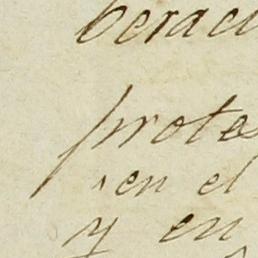 berac
prote
en el
y en